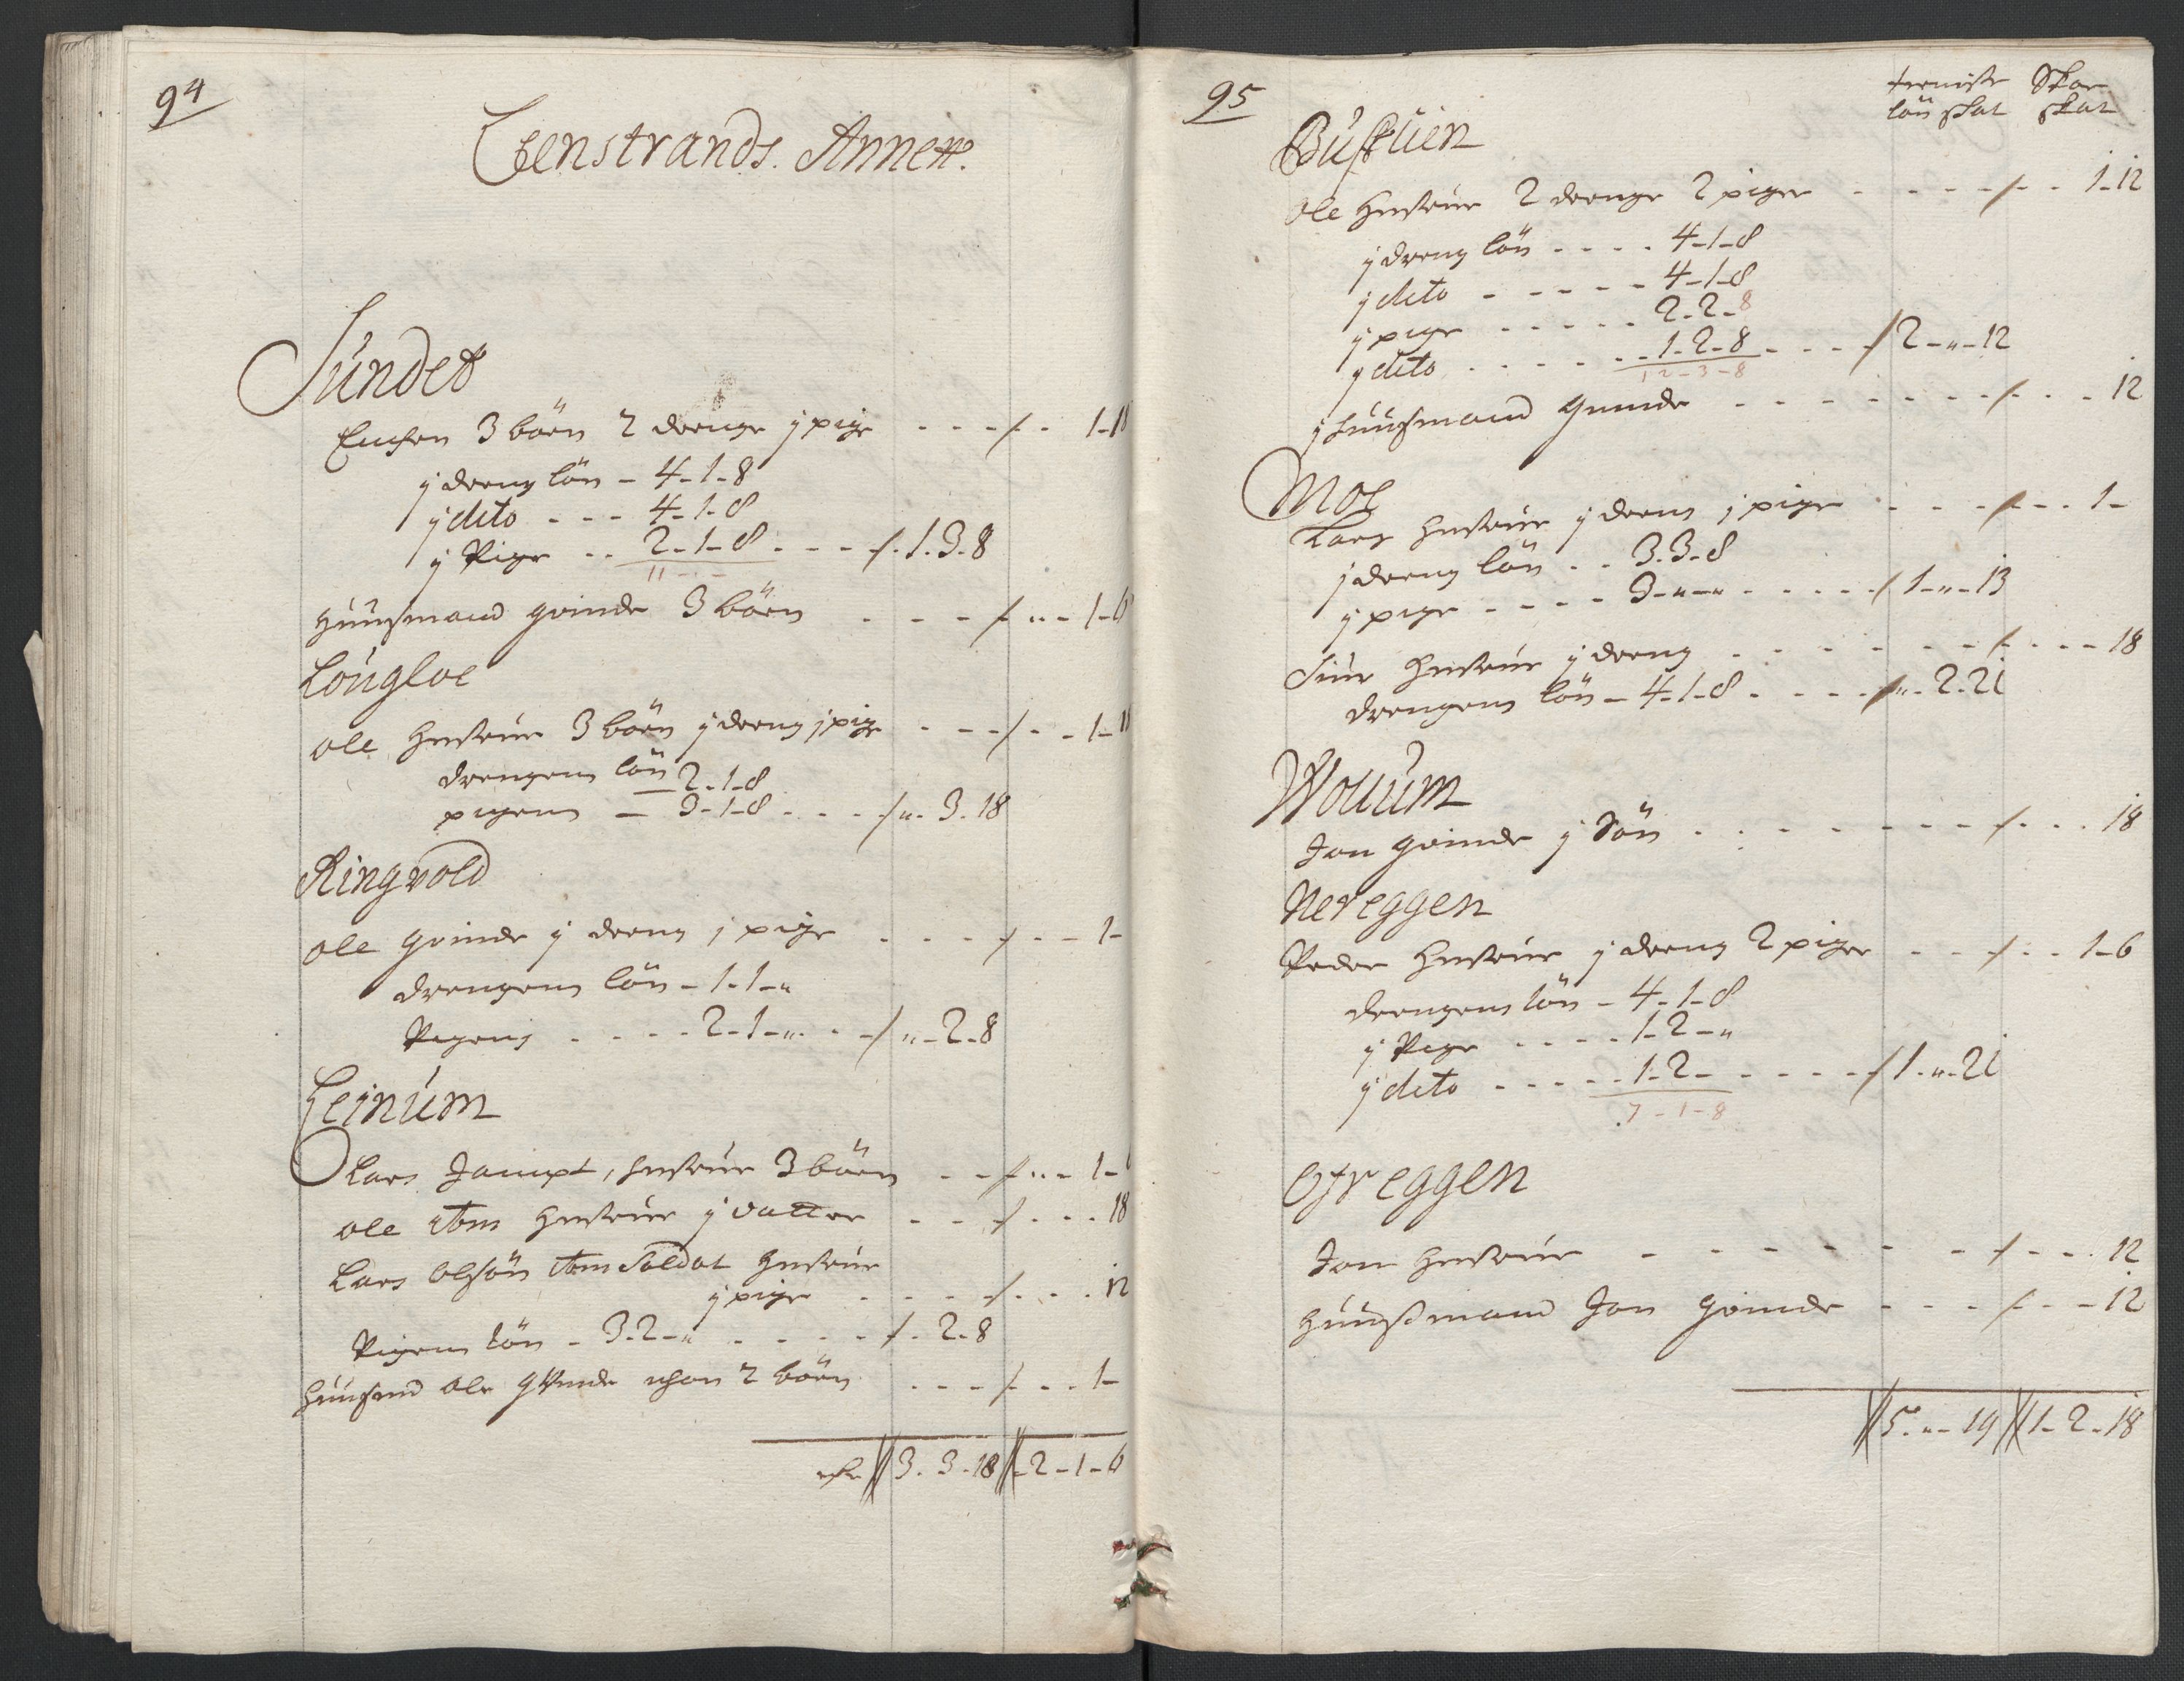 94
Leenstrands. Annex.
Sundet
Enchen 3 börn 2 drenge j pige - - - / - - 1-18
j dreng lön - 4-1-8
j dito - - - 4-1-8
j Pige - - 2-1-8 - - - /-1-3-8
11 - -
Huusmand qvinde 3 börn - - - / „- 1-6
Lougloe
Ole Hustrue 3 börn j dreng j pige - - - / - - 1-18
drengens lön 2-1-8
pigens - 3-1-8 - - - / „- 3-18
Ringvold
Ole qvinde j dreng j pige - - - / - - 1-
drengens lön - 1-1-„
Pigens - - - - 2-1-„ - - / „-2-8
Leinum
Lars Jampt, hustrue 3 börn - - / „- 1-6
Ole Hustrue j datter - - / - - - 18
Lars Olsön Soldat Hustrue
j pige - - - - / - - - 12
Pigens lön - 3-2-„ - - - - / - 2-8
Huusmd Ole qvinde 2 börn - - - / - - 1-
3-3-18 // - 2-1-6
95
lön skat Skoe skat
Buskuen
Ole Hustrue 2 drenge 2 piger - - - - / - - 1-12
j dreng lön - - - - 4-1-8
j dito - - - - - 4-1-8
j pige - - - - - 2-2-8
j dito - - - - - 1-2-8 - - - - / 2-„-12
12-3-8
j huusmand qvinde - - - - - - - / - - - 12
Moe
Lars Hustrue j dreng j pige - - - / - - - 1-
j dreng lön - - 3-3-8
j pige - - - - 3-„-„ - - - - - / 1-„-13
Siur Hustrue j dreng - - - - - - / - - - 18
drengens lön - 4-1-8 - - - - / „- 2-21
Wollum
Jon qvinde j Sön - - - - - - - / - - - 18
Nereggen
Peder Hustrue j dreng 2 piger - - / - - 1-6
drengens lön - 4-1-8
j Pige - - - - 1-2-„
j dito - - - - - 1-2- - - - - - / 1-„-21
7-1-8
Ofreggen
Jon Hustrue - - - - - - / - - - 12
Huusmand Jon qvinde - - - / - - - 12
// 5-„-19 // 1-2-18